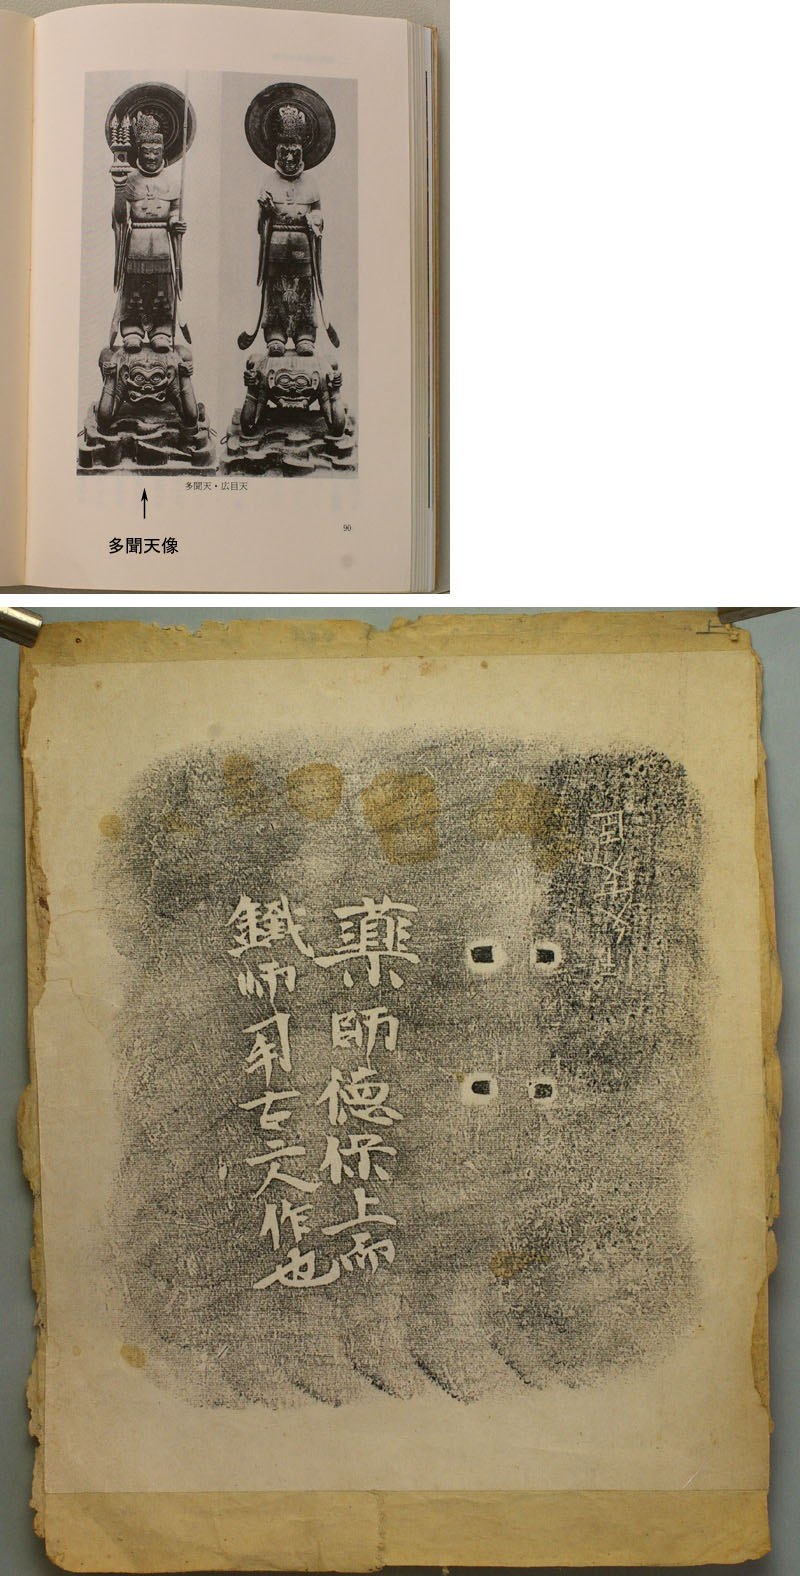 多聞天・広目天
90
多聞天像
上
薬師德保上而
鐵師𤘩古二人作也